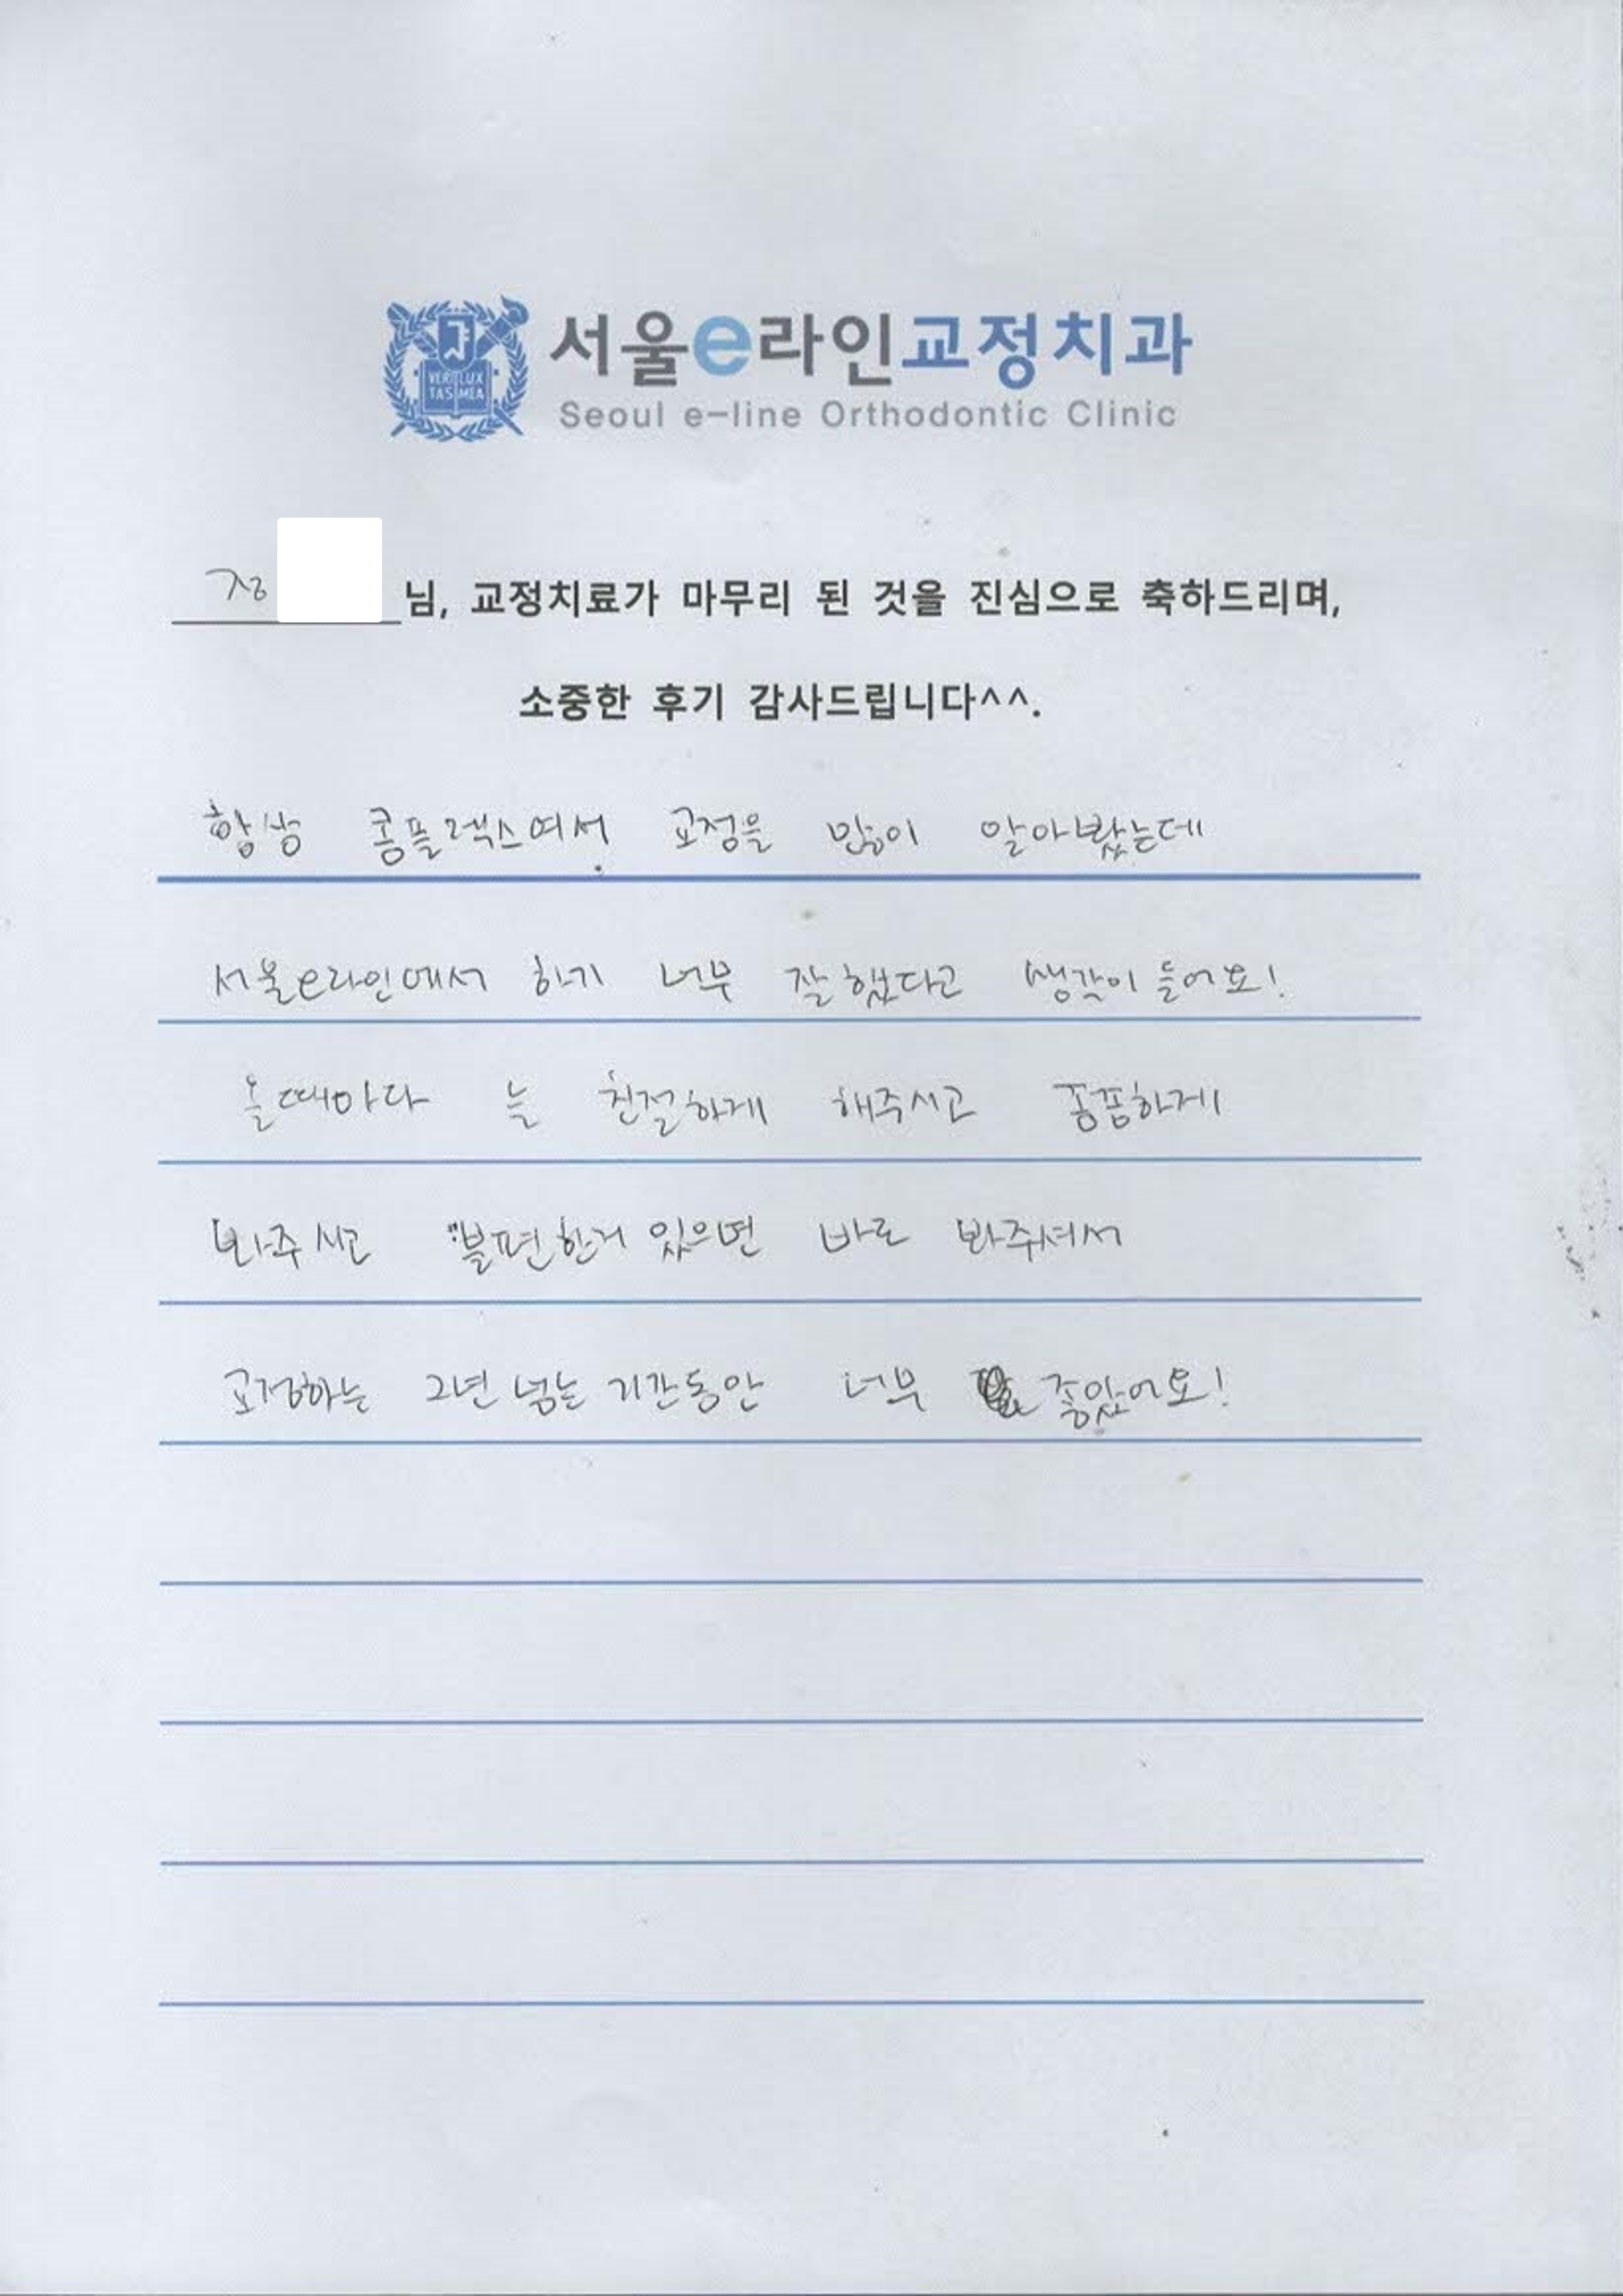 서울e라인교정치과
Seoul e-line Orthodontic Clinic
VERI LUX
TAS MEA
정 님, 교정치료가 마무리 된 것을 진심으로 축하드리며,
소중한 후기 감사드립니다^^.
항상 콤플렉스여서 교정을 많이 알아봤는데
서울e라인에서 하기 너무 잘했다고 생각이 들어요!
올때마다 늘 친절하게 해주시고 꼼꼼하게
봐주시고 불편한거 있으면 바로 봐주셔서
교정하는 2년 넘는 기간동안 너무 좋았어요!